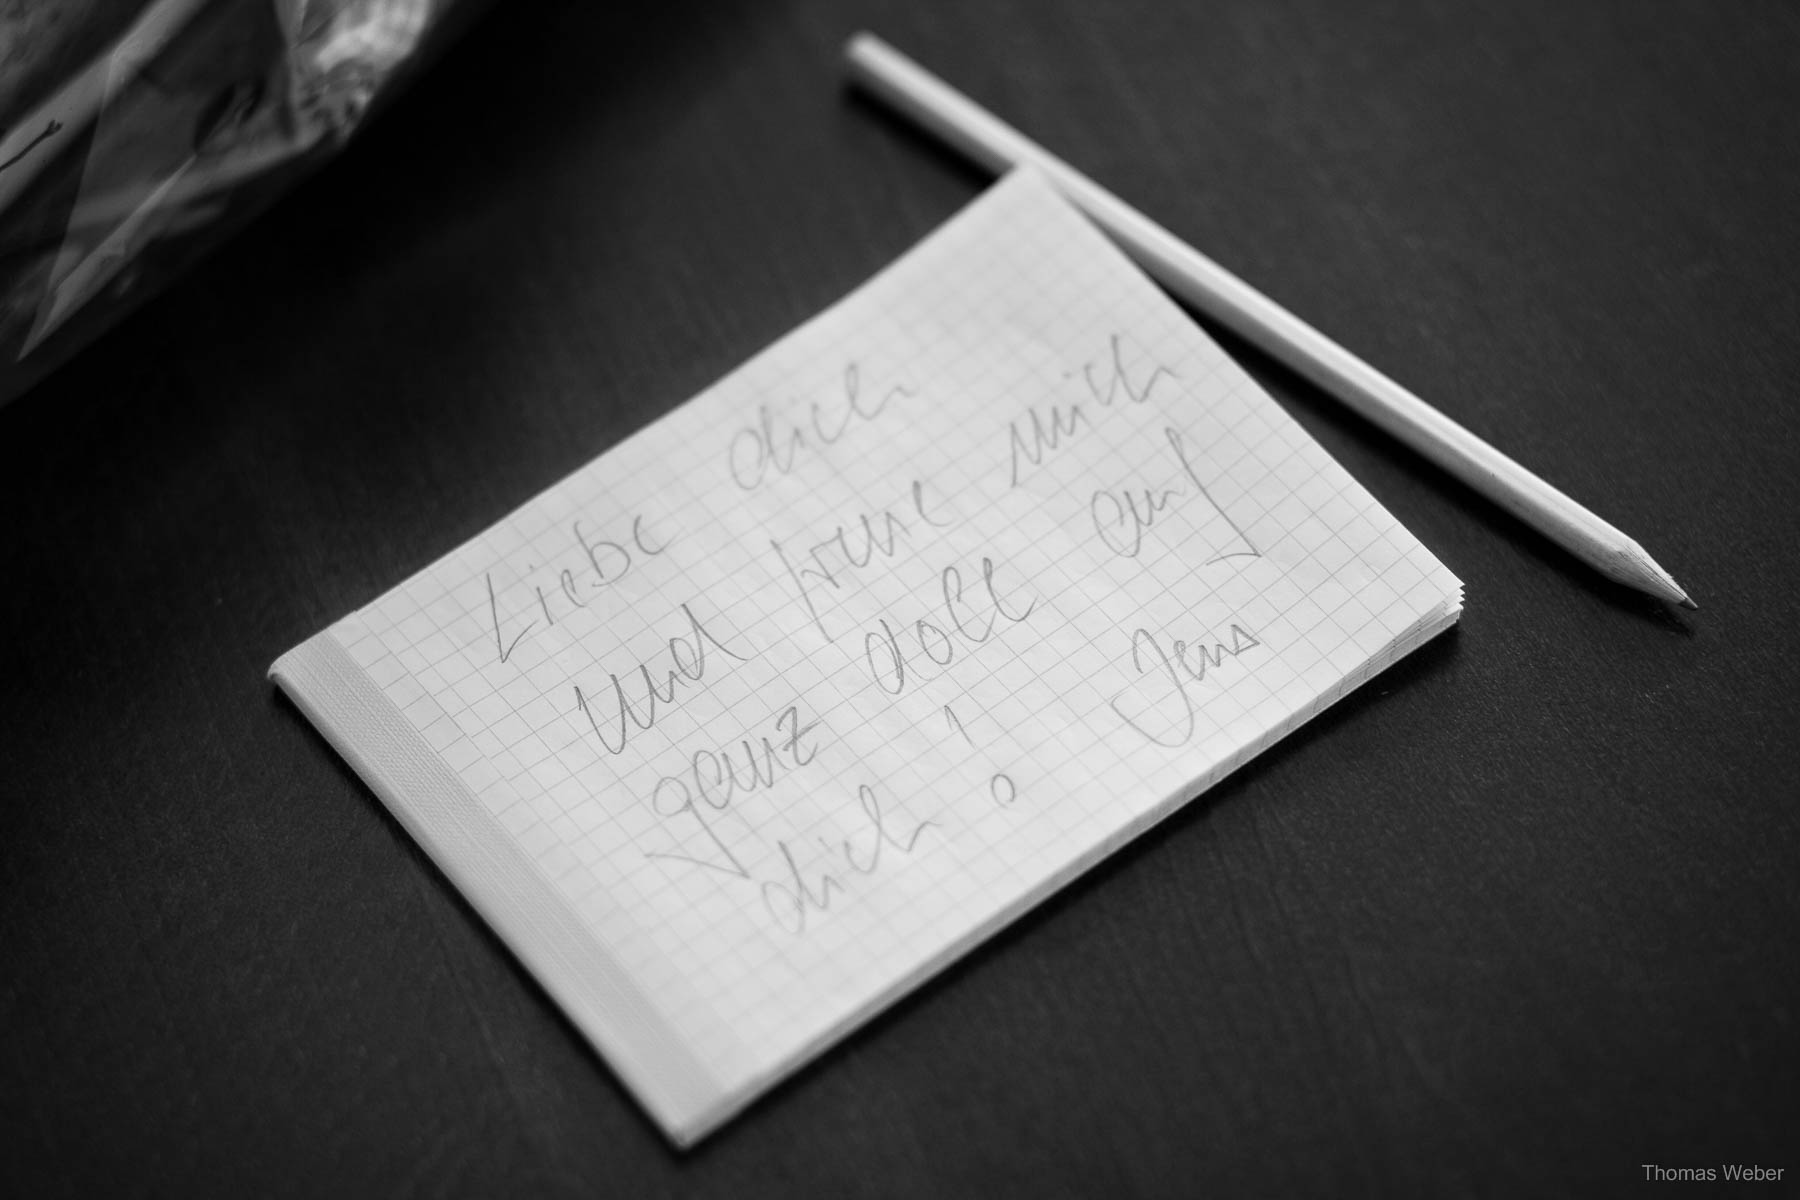 Liebe dich
und freue mich
ganz doll auf
dich! Jens
Thomas Weber